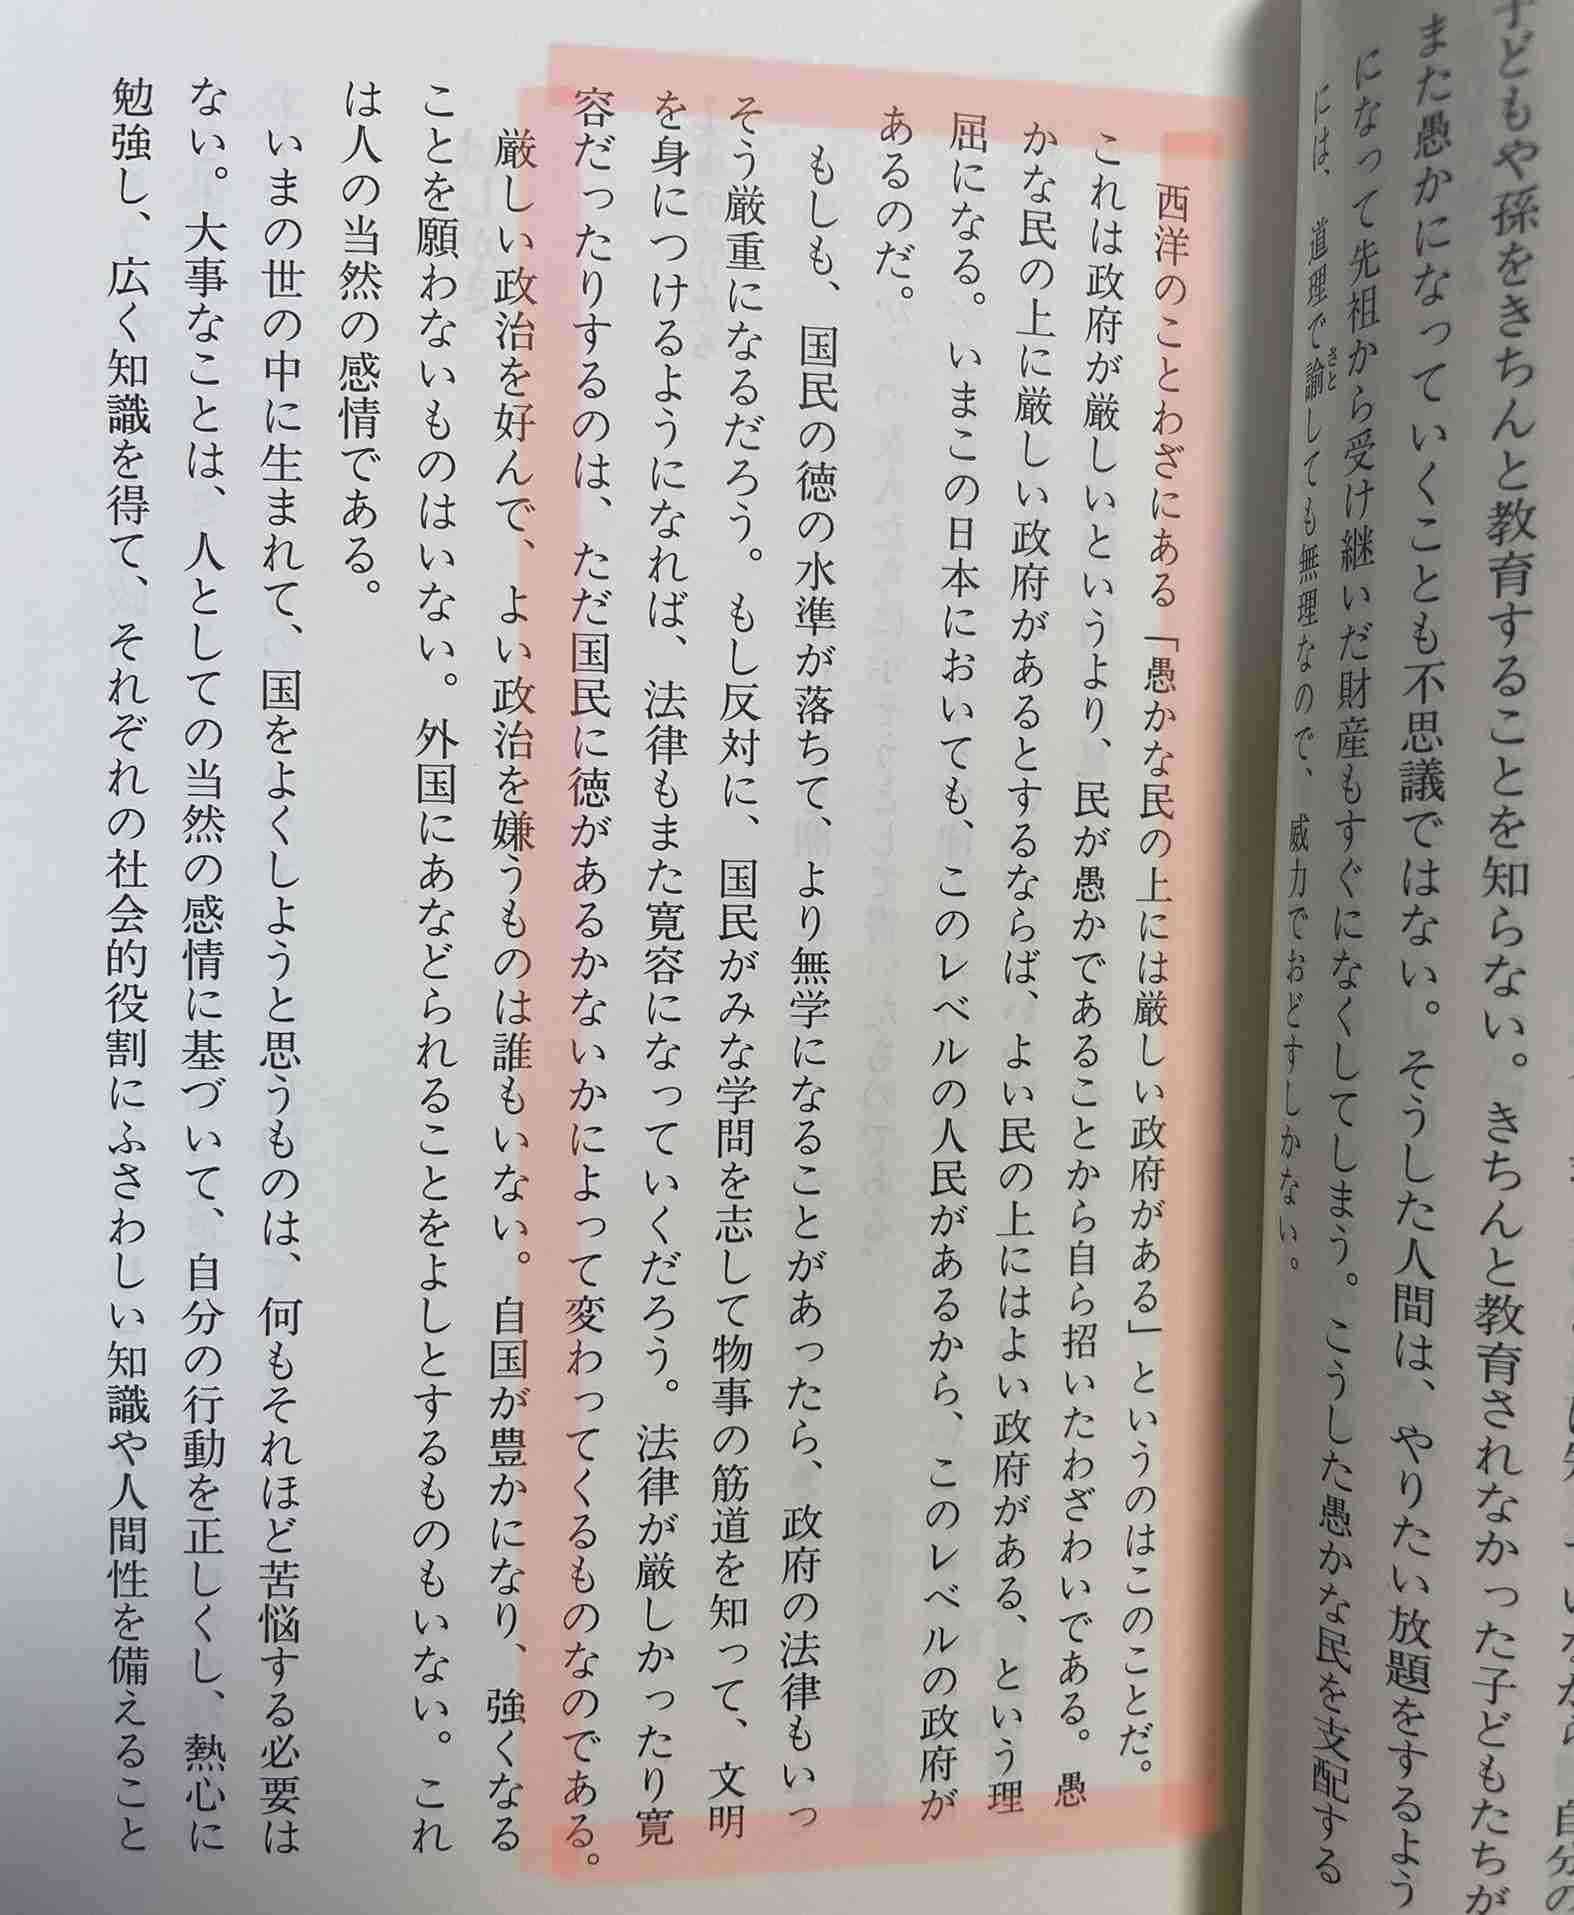 子どもや孫をきちんと教育することを知らない。きちんと教育されなかった子どもたちが
また愚かになっていくことも不思議ではない。そうした人間は、やりたい放題をするよう
になって先祖から受け継いだ財産もすぐになくしてしまう。こうした愚かな民を支配する
には、道理で諭しても無理なので、威力でおどすしかない。
さと
西洋のことわざにある「愚かな民の上には厳しい政府がある」というのはこのことだ。
これは政府が厳しいというより、民が愚かであることから自ら招いたわざわいである。愚
かな民の上に厳しい政府があるとするならば、よい民の上にはよい政府がある、という理
屈になる。いまこの日本においても、このレベルの人民があるから、このレベルの政府が
あるのだ。
もしも、国民の徳の水準が落ちて、より無学になることがあったら、政府の法律もいっ
そう厳重になるだろう。もし反対に、国民がみな学問を志して物事の筋道を知って、文明
を身につけるようになれば、法律もまた寛容になっていくだろう。法律が厳しかったり寛
容だったりするのは、ただ国民に徳があるかないかによって変わってくるものなのである。
厳しい政治を好んで、よい政治を嫌うものは誰もいない。自国が豊かになり、強くなる
ことを願わないものはいない。外国にあなどられることをよしとするものもいない。これ
は人の当然の感情である。
いまの世の中に生まれて、国をよくしようと思うものは、何もそれほど苦悩する必要は
ない。大事なことは、人としての当然の感情に基づいて、自分の行動を正しくし、熱心に
勉強し、広く知識を得て、それぞれの社会的役割にふさわしい知識や人間性を備えること